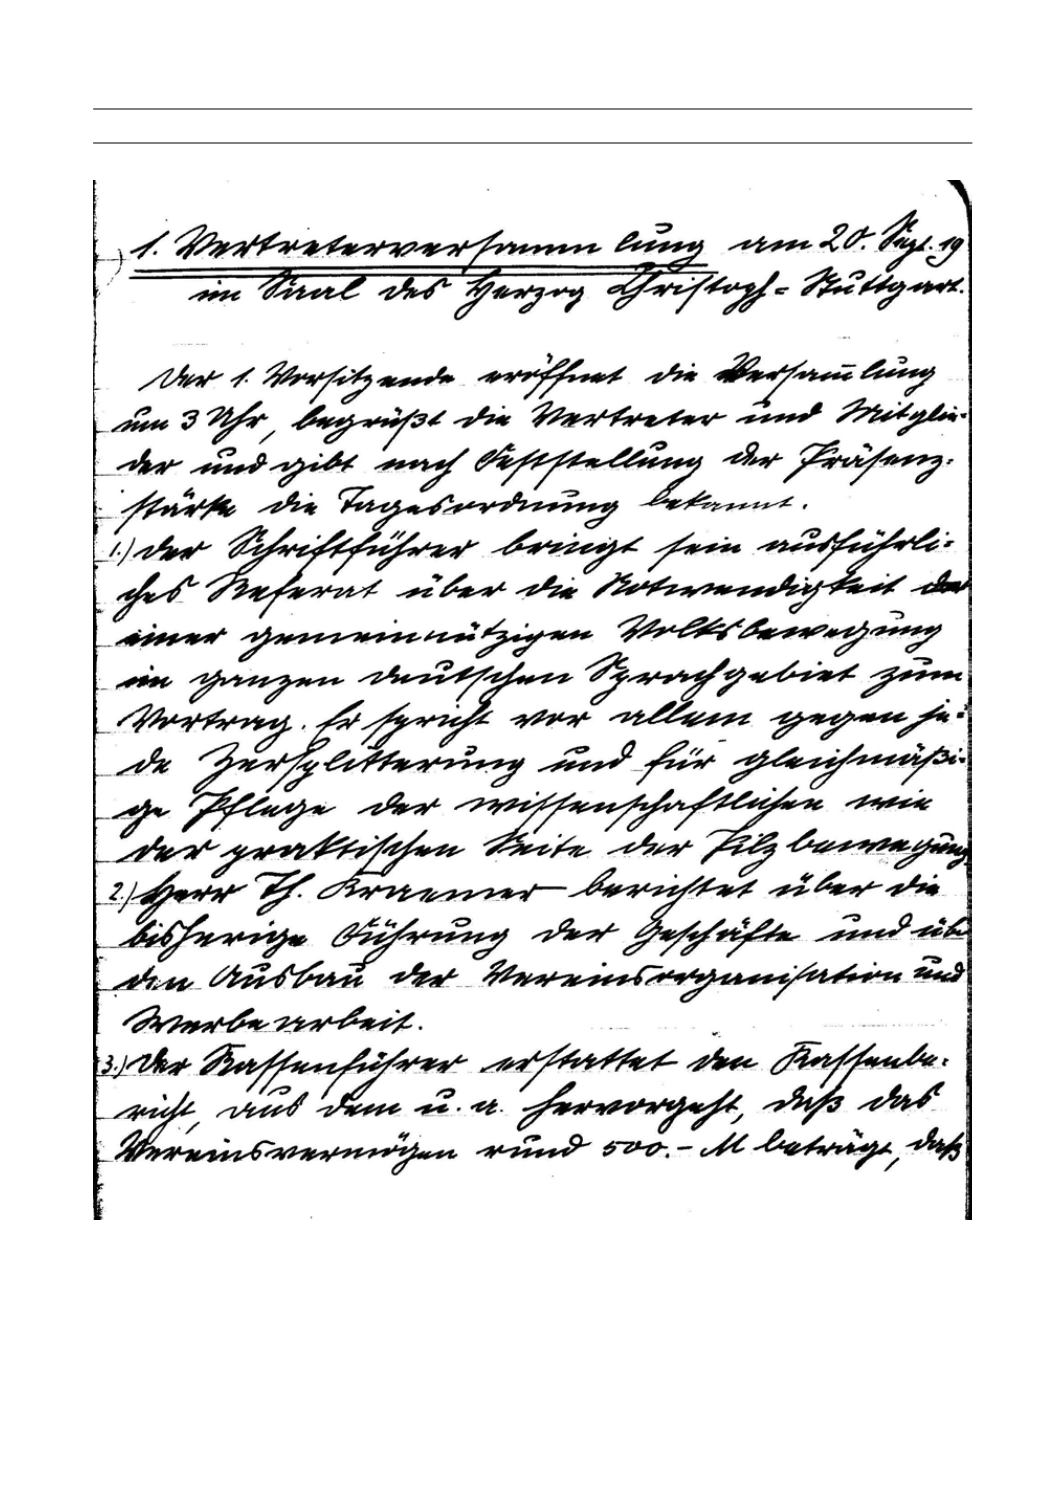 1. Vertreterversammlung am 20. Sept. 19
im Saal des Herzog Christoph = Stuttgart.
Der 1. Vorsitzende eröffnet die Versam̅lung
um 3 Uhr, begrüßt die Vertreter und Mitglie-
der und gibt nach Feststellung der Präsenz-
stärke die Tagesordnung bekannt.
1.) Der Schriftführer bringt sein ausführli-
ches Referat über die Notwendigkeit der
einer gemeinnützigen Volksbewegung
im ganzen deutschen Sprachgebiet zum
Vortrag. Er spricht vor allem gegen je-
de Zersplitterung und für gleichmäßi-
ge Pflege der wissenschaftlichen wie
der praktischen Seite der Pilzbewegung
2.) Herr Th. Kraemer berichtet über die
bisherige Führung der Geschäfte und übe
den Ausbau der Vereinsorganisation und
Werbearbeit.
3.) Der Kassenführer erstattet den Kassenbe-
richt, aus dem u. a. hervorgeht, daß das
Vereinsvermögen rund 500.- M beträgt, daß